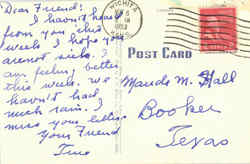 Dear Friend:
I haven't heard
from you this
week I hope you
are not sick. I
am feeling better
this week. We
haven't had
much rain. I
miss your letters
Your Friend
WICHITA
POST CARD
Maude M. Hall
Booker
Texas